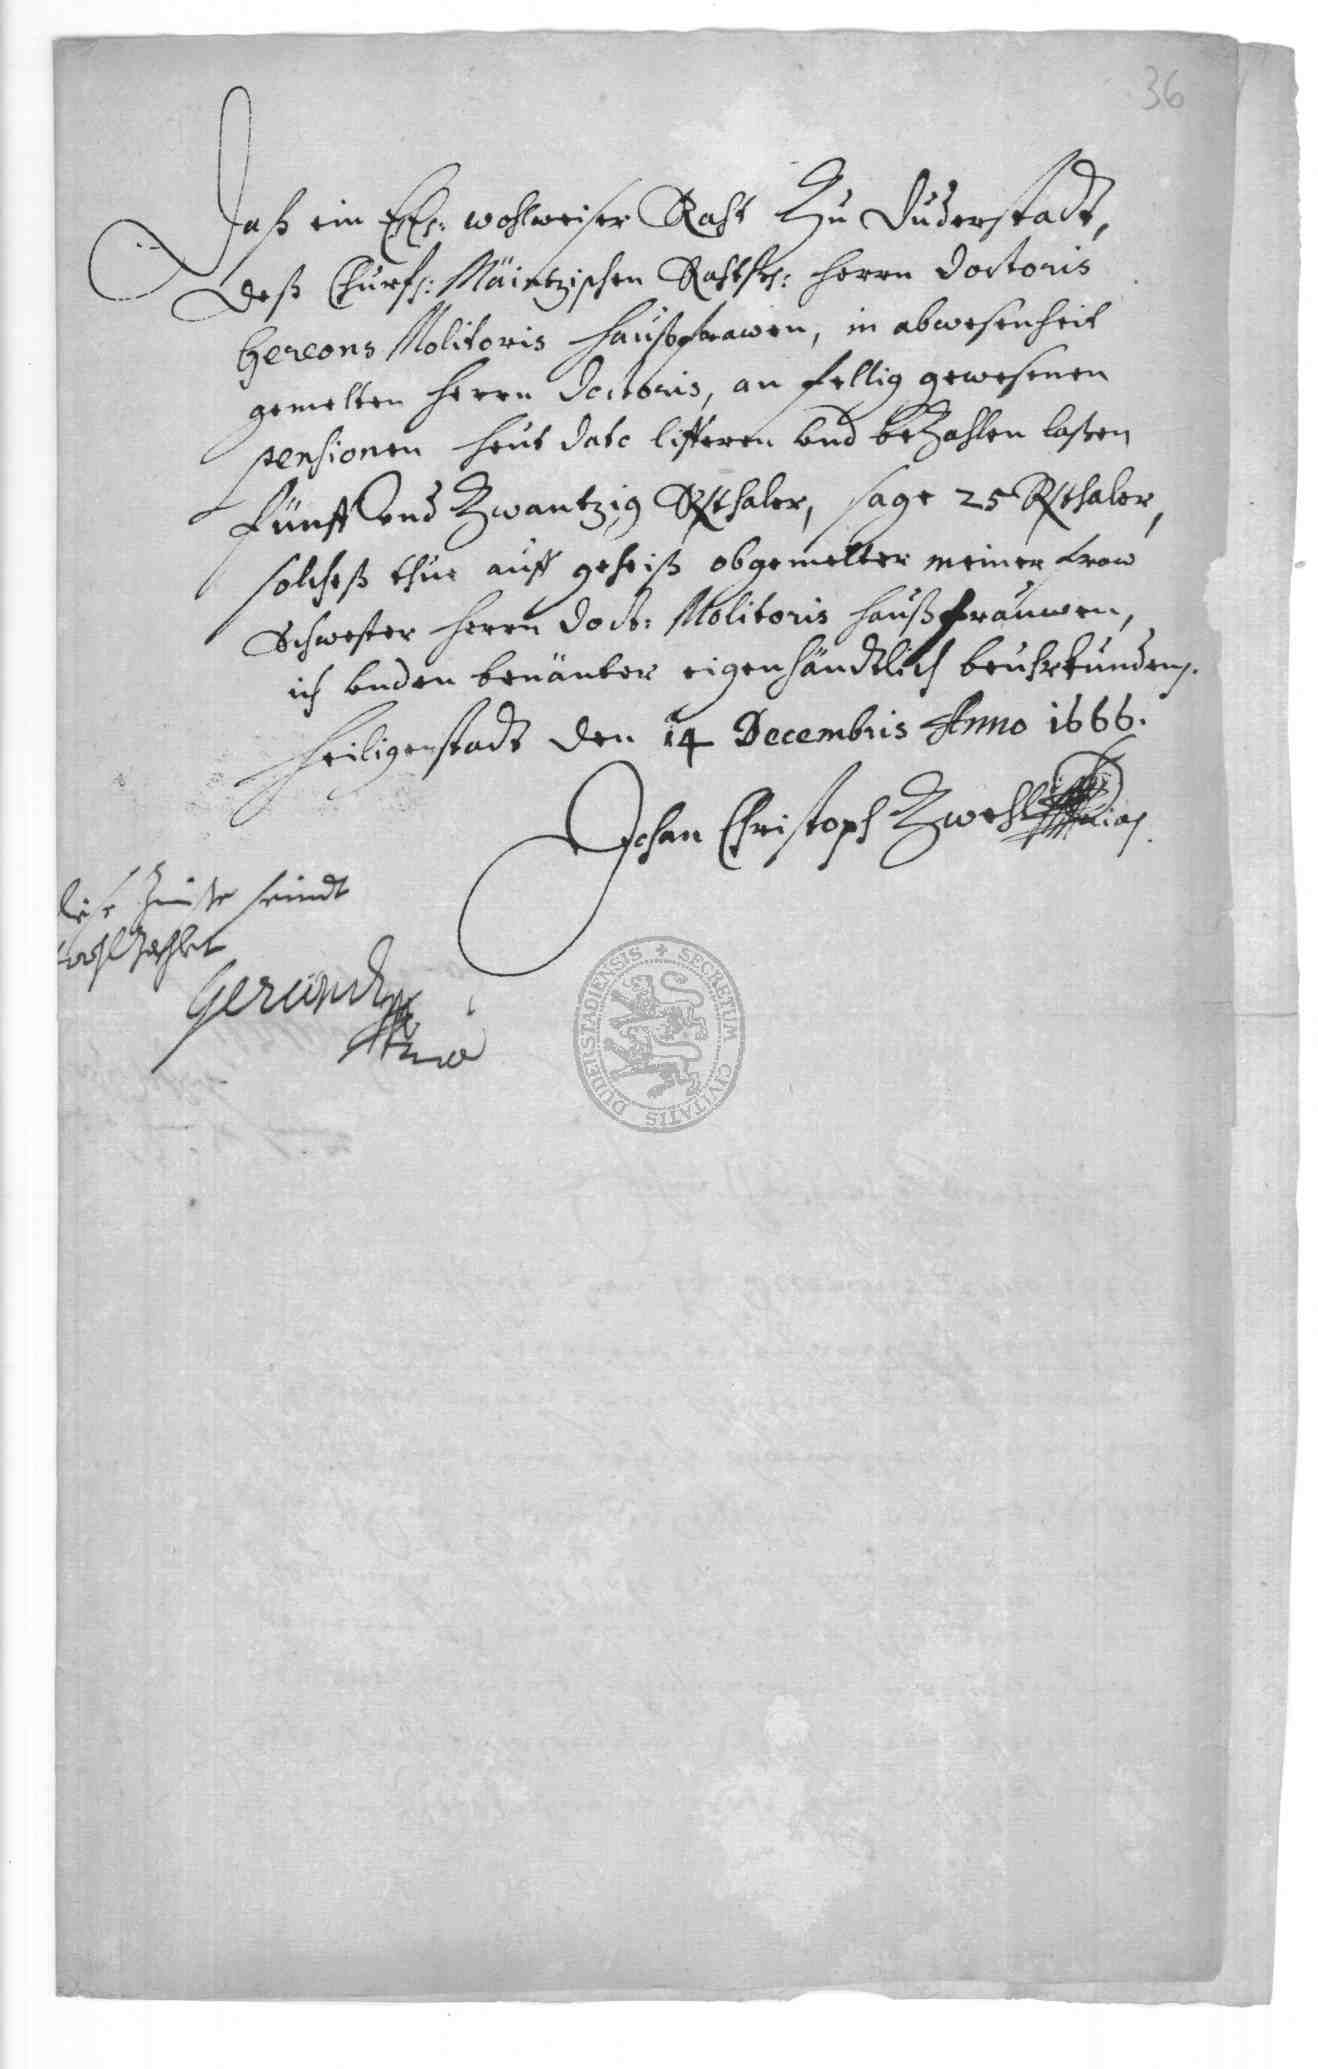 36
Daß ein Ehs: wohlweiser Raht Zu Duderstadt,
deß Churfs: Mäintzischen Rahts: herrn Doctoris
Gereons Molitoris haußfrawen, in abwesenheit
gemelten herrn Doctoris, an fellig gewesenen
pensionen heut dato lifferen vnd beZahlen laßen
fünff vnd Zwantzig Rthaler, sage 25 Rthaler,
solcheß thue auff geheiß obgemelter meiner fraw
Schwester herrn Doct: Molitoris haußfrauwen,
ich vnden benänter eigenhändtlich beuhrkunden.
heiligenstadt den 14 Decembris Anno 1666.
Johan Christoph Zwehl
diese Zinße seindt
Gerundt
SECRETUM CIVITATIS DUDERSTADIENSIS